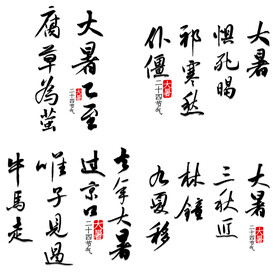 大暑已至
腐草為螢
大暑
二十四节气
大暑
惧孔暍
邪寒愁
仆僵
大暑
二十四节气
去年大暑
过京口
唯子見過
牛馬走
大暑
二十四节气
大暑
三秋近
林鐘
九夏移
大暑
二十四节气